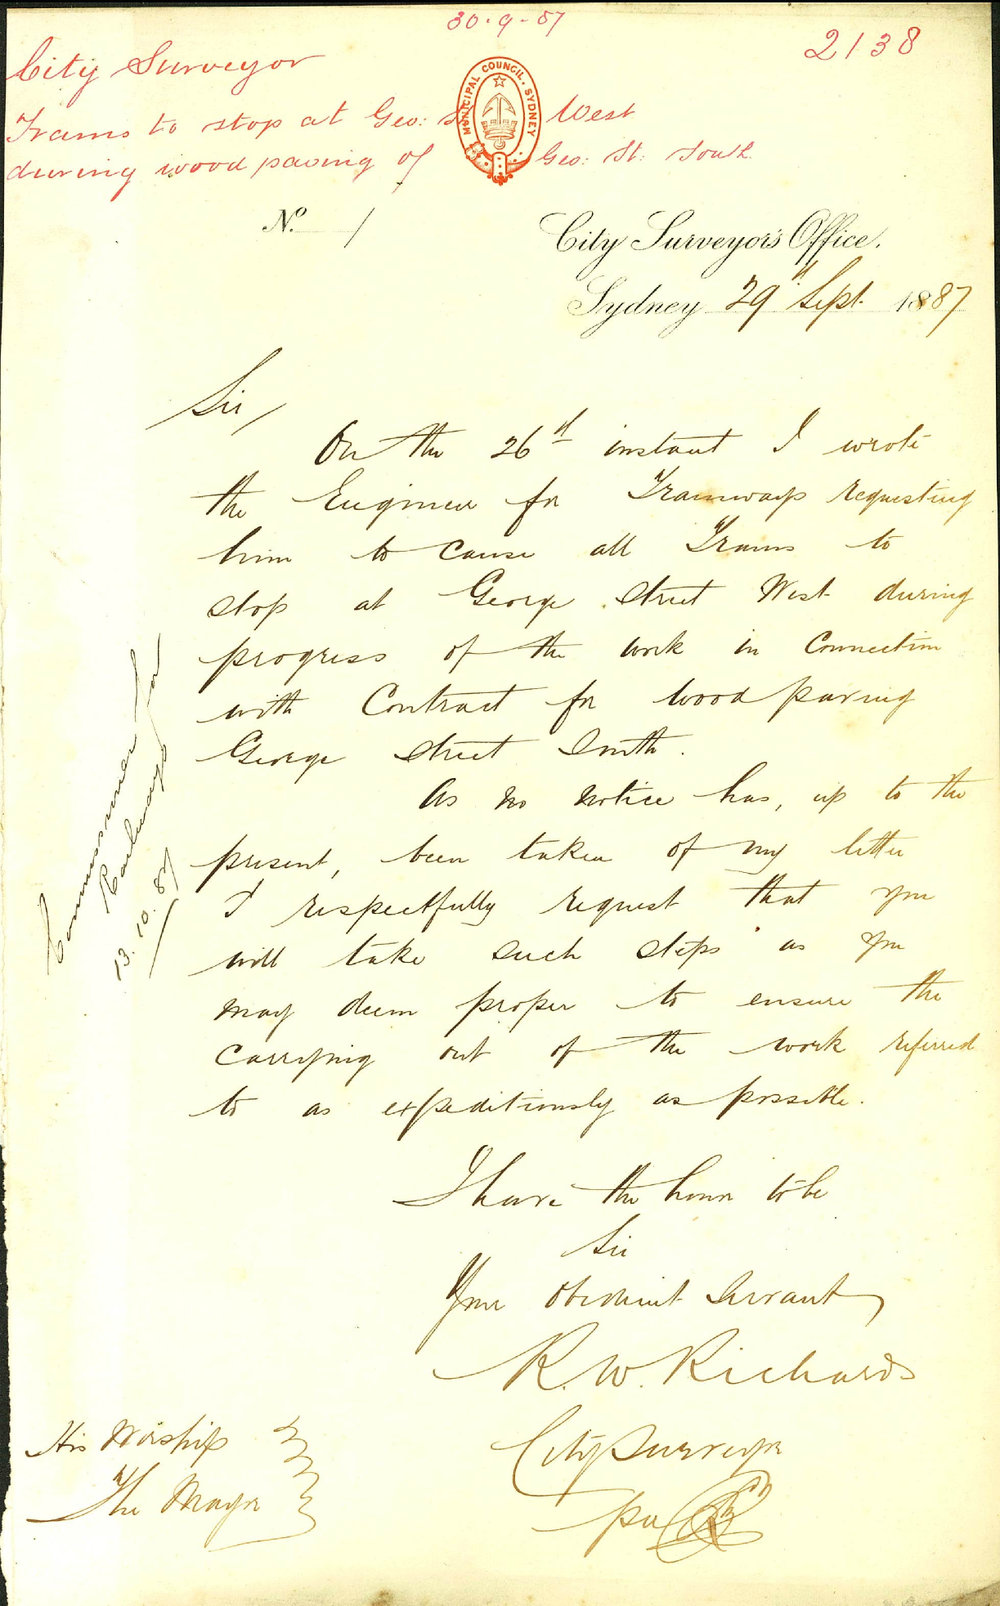 30.9.87
2138
City Surveyor
Trams to stop at Geo: St West
during wood paving of Geo: St: South
MUNICIPAL COUNCIL. SYDNEY
No. 1
City Surveyor's Office.
Sydney 29th Sept. 1887
Sir,
On the 26th instant I wrote
the Engineer for Tramways requesting
him to cause all Trams to
stop at George Street West during
progress of the work in Connection
with Contract for wood paving
George Street South.
As no notice has, up to the
present, been taken of my letter
I respectfully request that you
will take such steps as you
may deem proper to ensure the
carrying out of the work referred
to as expeditiously as possible.
I have the honor to be
Sir
Your Obedient Servant
R. W. Richards
City Surveyor
per
His Worship
The Mayor
Commissioner for
Railways
13.10.87